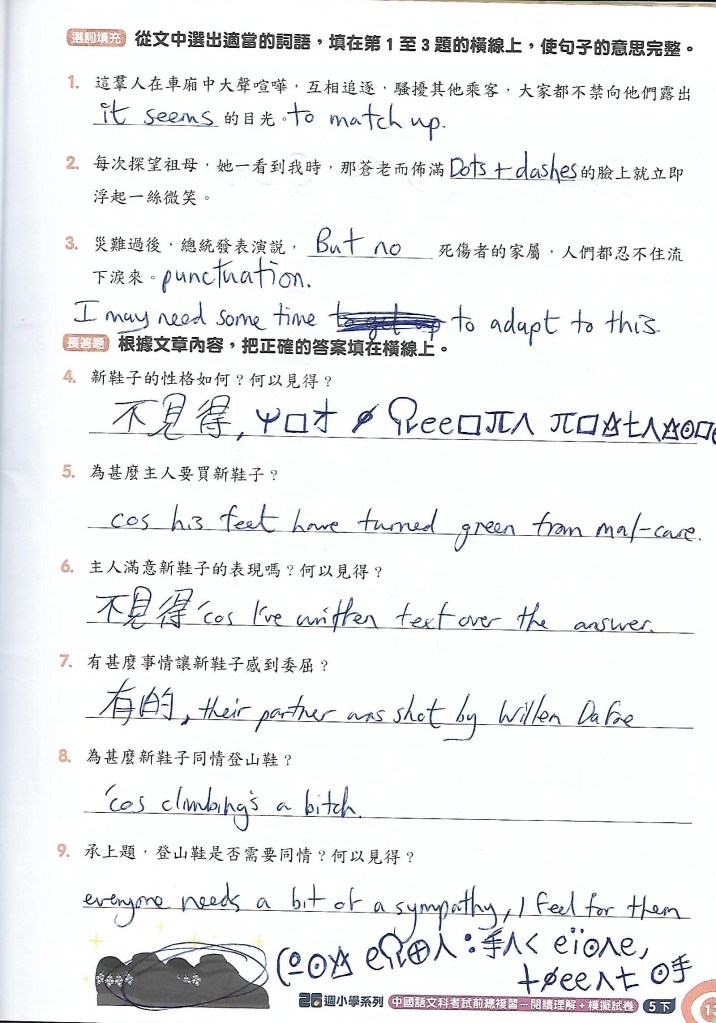 選詞填充 從文中選出適當的詞語，填在第 1 至 3 題的橫線上，使句子的意思完整。
1. 這羣人在車廂中大聲喧嘩，互相追逐，騷擾其他乘客，大家都不禁向他們露出
it seems 的目光。to match up.
2. 每次探望祖母，她一看到我時，那蒼老而佈滿 Dots + dashes 的臉上就立即
浮起一絲微笑。
3. 災難過後，總統發表演說， But no 死傷者的家屬，人們都忍不住流
下淚來。punctuation.
I may need some time to adapt to this.
長答題 根據文章內容，把正確的答案填在橫線上。
4. 新鞋子的性格如何？何以見得？
不見得,
5. 為甚麼主人要買新鞋子？
cos his feet have turned green from mal-care.
6. 主人滿意新鞋子的表現嗎？何以見得？
不見得 'cos I've written text over the answer.
7. 有甚麼事情讓新鞋子感到委屈？
有的, their partner was shot by Willem Dafoe
8. 為甚麼新鞋子同情登山鞋？
'cos climbing's a bitch.
9. 承上題，登山鞋是否需要同情？何以見得？
everyone needs a bit of a sympathy, I feel for them
26週小學系列 中國語文科考試前總複習－閱讀理解＋模擬試卷 5下